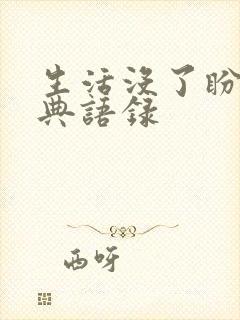 生活没了盼
典語錄
西呀